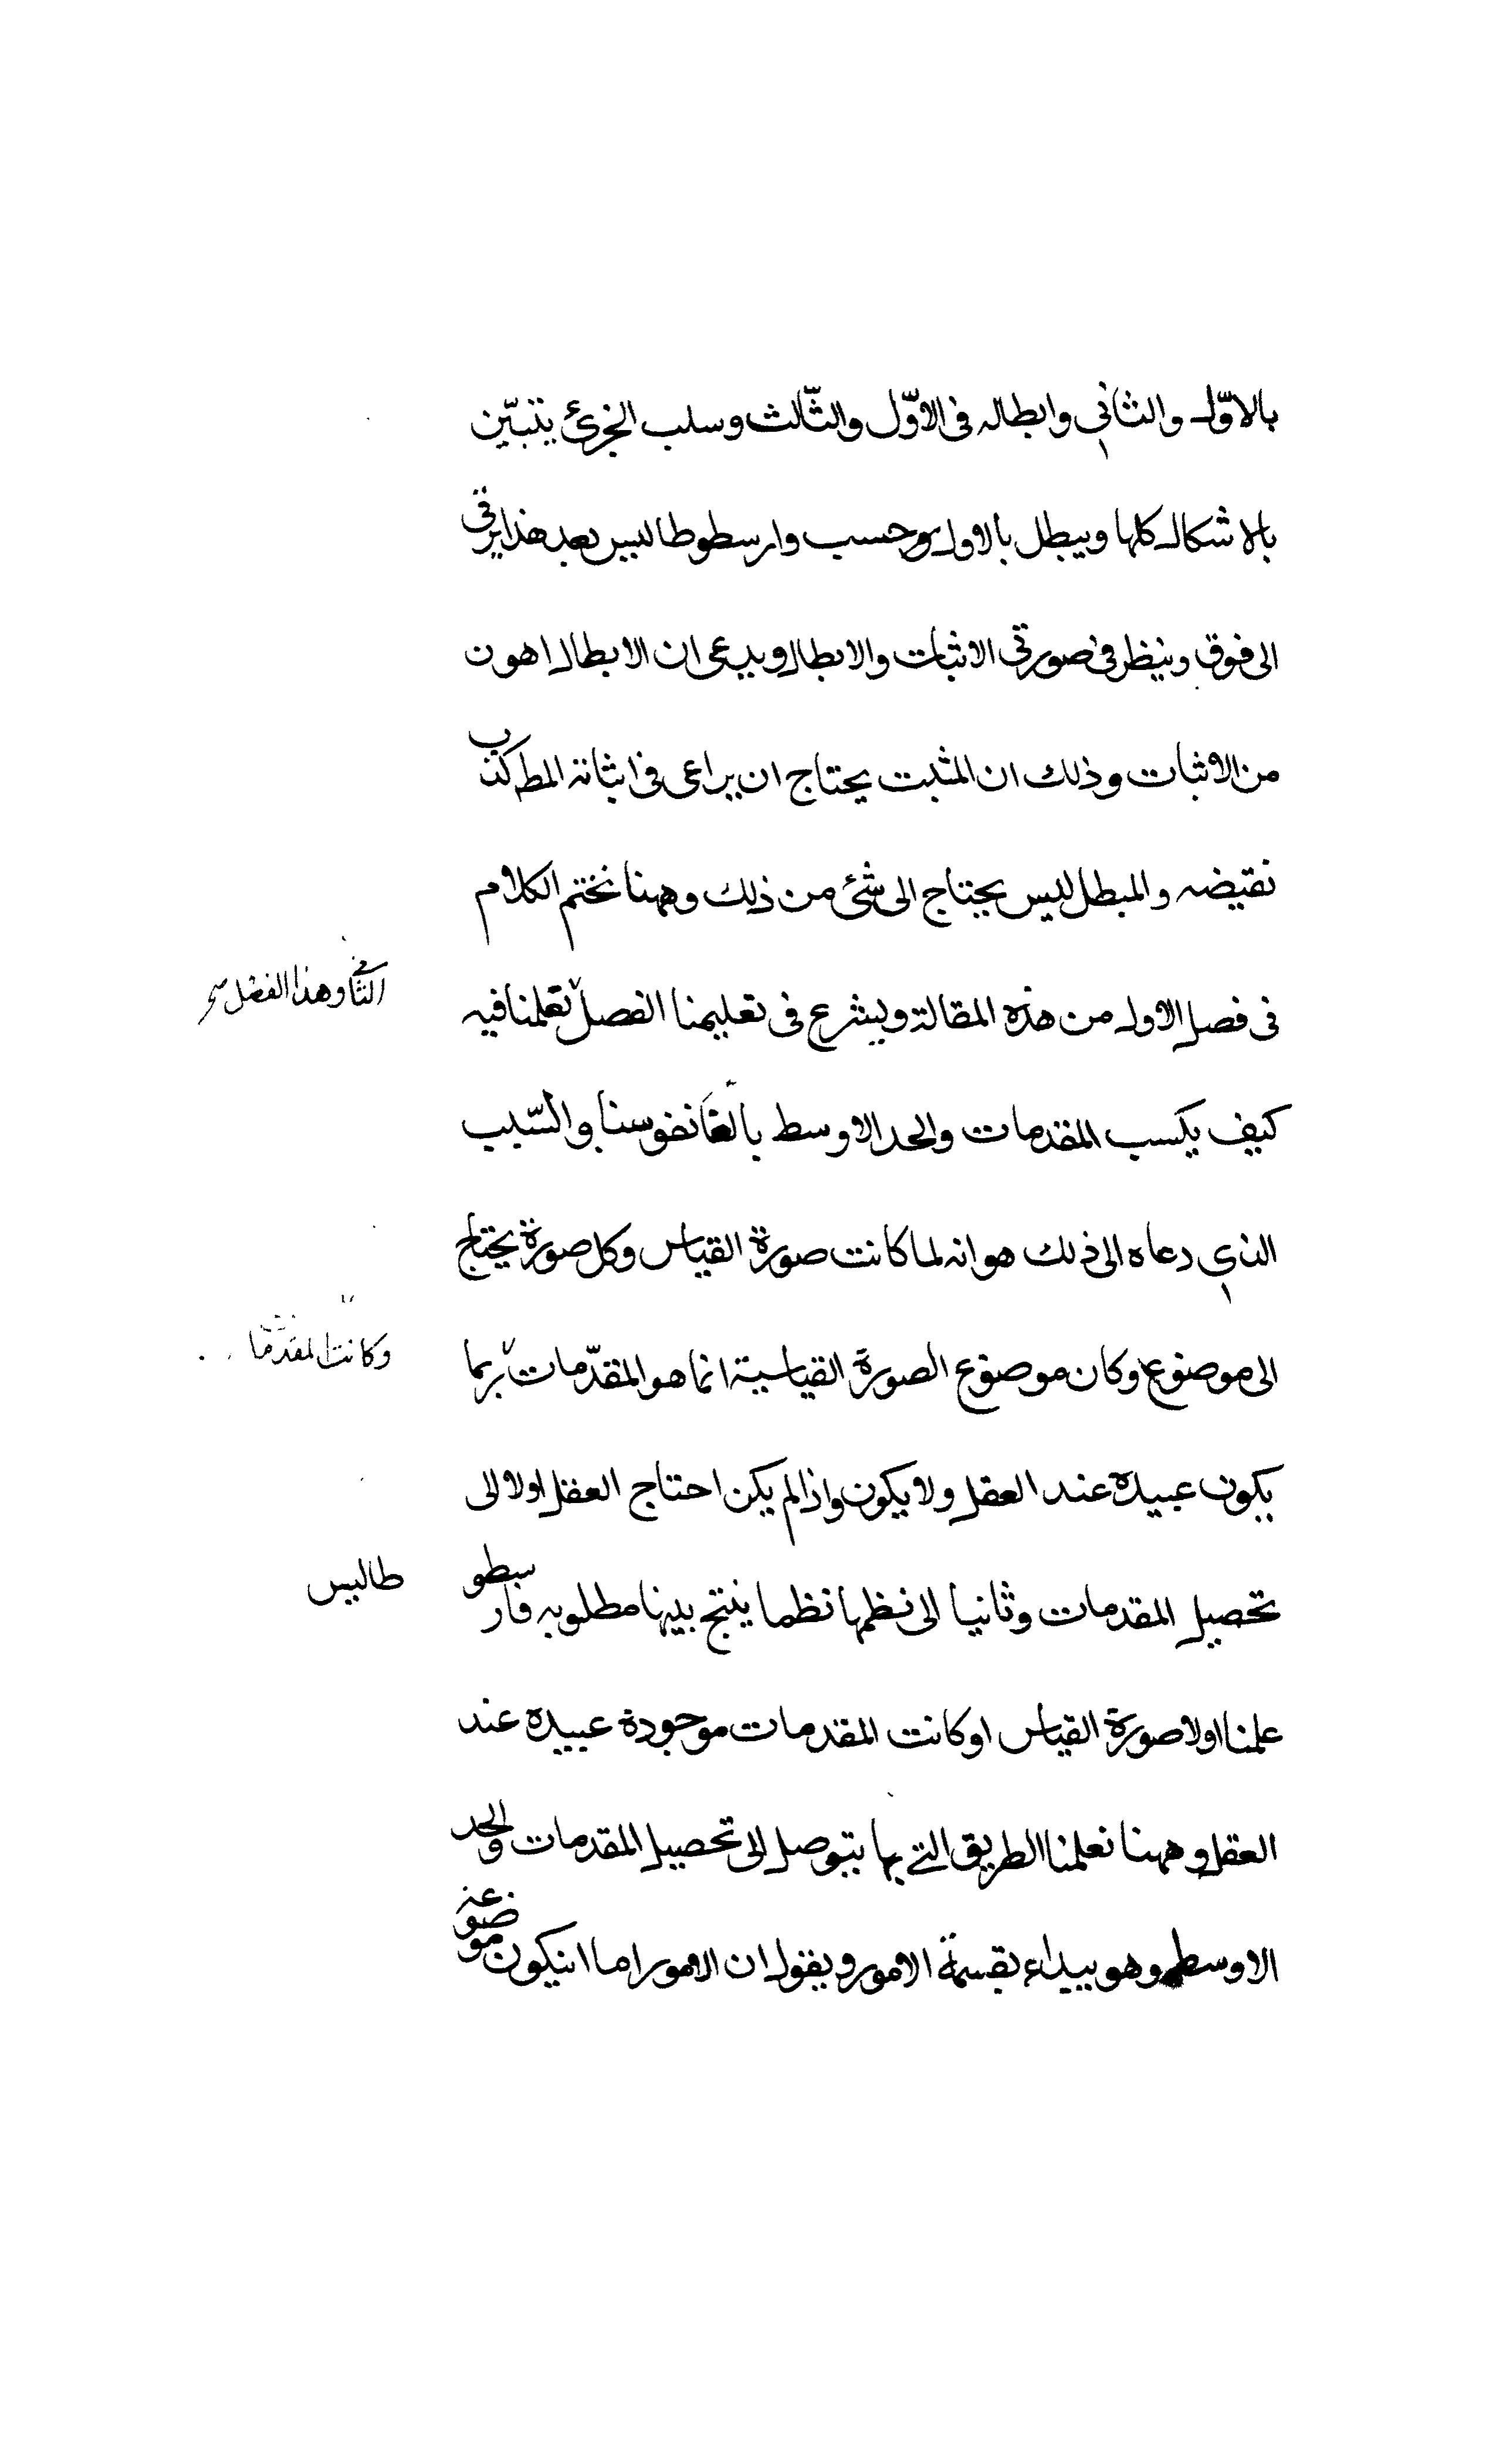 بالاوّل والثاني وابطاله فى الاوّل والثّالث وسلب الجزئ يتبيّن
بالاشكال كلها ويبطل بالاول وحسب وارسطوطاليس بعد هذا يرقى
الى فوق وينظر فى صورتى الاثبات والابطال ويدعى ان الابطال اهون
من الاثبات وذلك ان المثبت يحتاج ان يراعى فى اثباته المط كذب
نقيضه والمبطل ليس يحتاج الى شئ من ذلك وههنا نختم الكلام
فى فصل الاول من هذه المقالة ويشرع فى تعليمنا الفصل تعلمنا فيه
الثانى وهذا الفصل
كيف يكسب المقدمات والحد الاوسط نفوسنا والسّبب
الذى دعاه الى ذلك هو انه لما كانت صورة القياس وكل صورة يحتاج
الى موضوع وكان موضوع الصورة القياسية انما هو المقدّمات ربما
وكانت المقدّما
يكون عبيدة عند العقل ولا يكون واذا لم يكن احتاج العقل اولا الى
تحصيل المقدمات وثانيا الى نظمها نظما ينتج بينها مطلوبه فارسطو
طاليس
علمنا اولا صورة القياس او كانت المقدمات موجودة عبيده عند
العقل وههنا تعلمنا الطريق التى بها يتوصل الى تحصيل المقدمات والحد
الاوسط وهو يبداء بقسمة الامور ويقول ان الامور اما ان يكون موضوعة